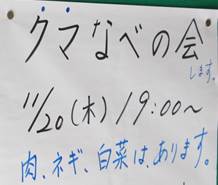 クマなべの会
します。
11/20(木)19:00〜
肉、ネギ、白菜は、あります。